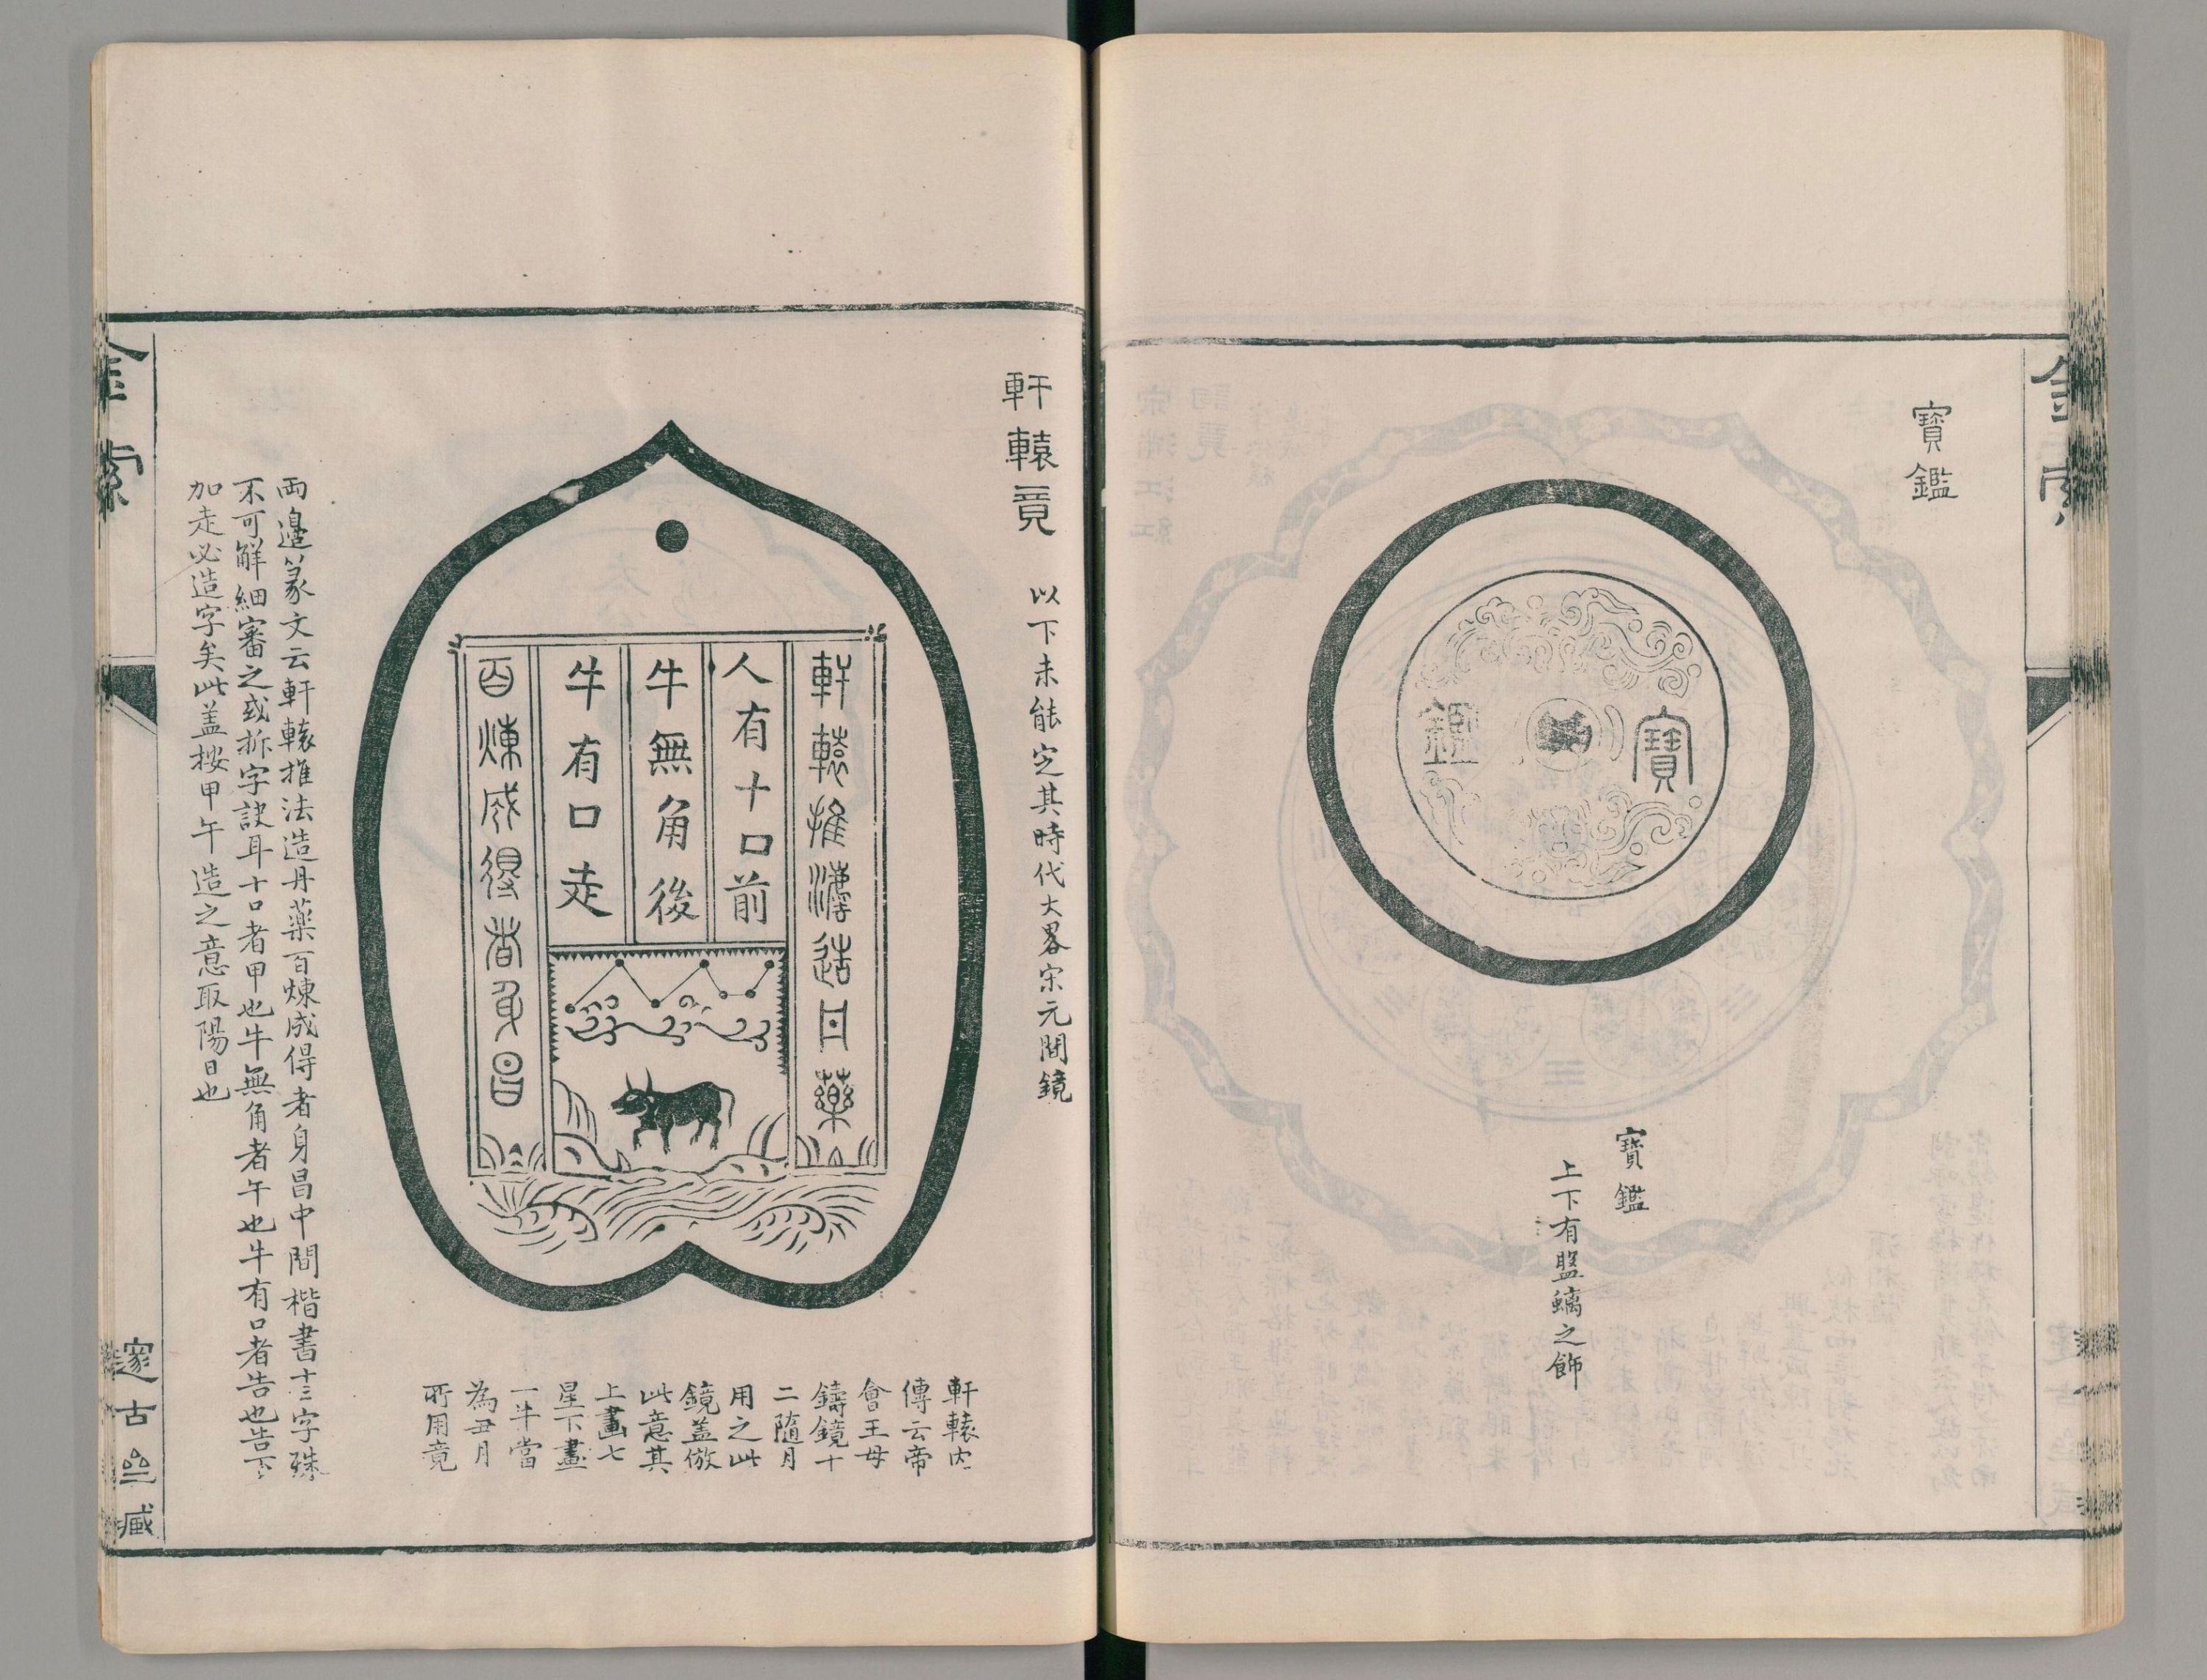 寶鑑
寶
鑑
寶鑑
上下有盤螭之飾
軒轅竟 以下未能定其時代大畧宋元間鏡
軒轅推灋造丹藥
人有十口前
牛無角後
牛有口走
百煉成得者身昌
軒轅內
傳云帝
會王母
鑄鏡十
二隨月
用之此
鏡盖倣
此意其
上畫七
星下畫
一牛當
為丑月
所用竟
兩邉篆文云軒轅推法造丹藥百煉成得者身昌中間楷書十三字殊
不可解細審之或拆字訣耳十口者甲也牛無角者午也牛有口者告也告下
加走必造字矣此盖按甲午造之意取陽日也
金索
邃古 藏